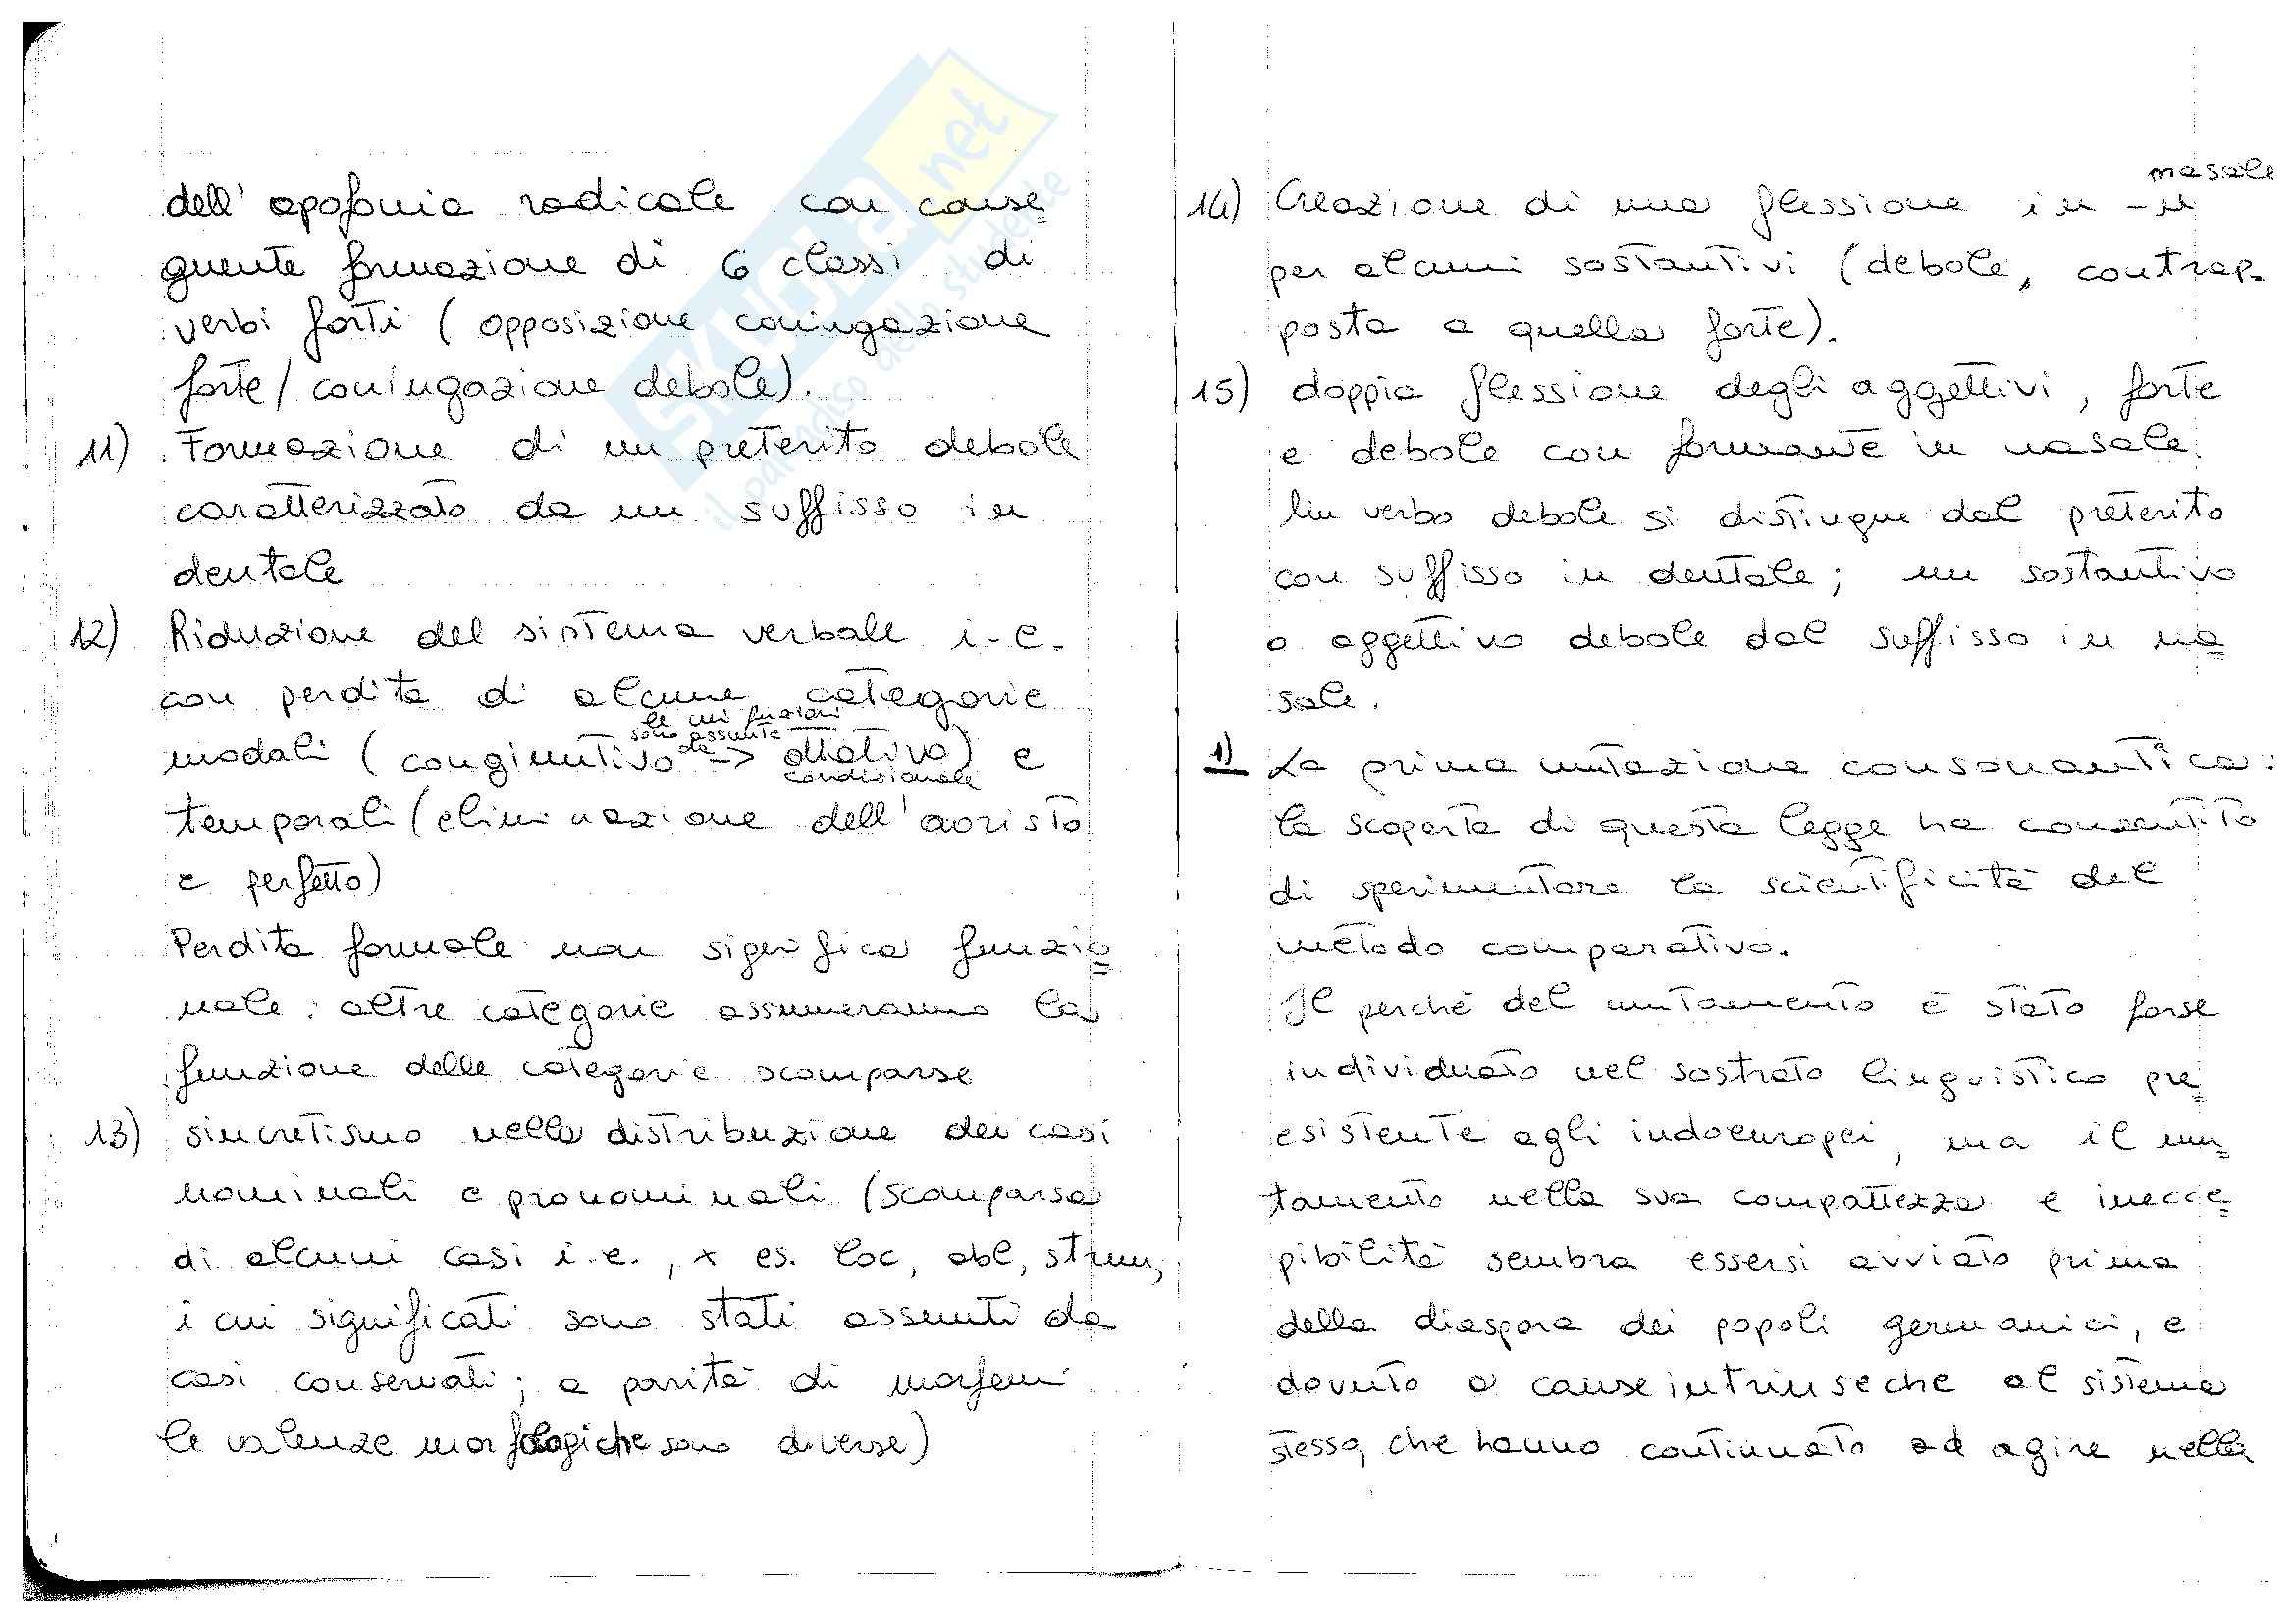 dell'apofonia radicale con conse=
guente formazione di 6 classi di
verbi forti (opposizione coniugazione
forte/coniugazione debole).
11) Formazione di un preterito debole
caratterizzato da un suffisso in
dentale
12) Riduzione del sistema verbale i-e.
con perdita di alcune categorie
le cui funzioni
sono assunte
modali (congiuntivo da -> ottativo) e
condizionale
temporali (eliminazione dell'aoristo
e perfetto)
Perdita formale non significa funzio=
nale: altre categorie assumeranno la
funzione delle categorie scomparse
13) sincretismo nella distribuzione dei casi
nominali e pronominali (scomparsa
di alcuni casi i.e., x es. loc, abl, strum,
i cui significati sono stati assunti da
casi conservati; a parità di morfemi
le valenze morfologiche sono diverse)
nasale
14) Creazione di una flessione in -n
per alcuni sostantivi (debole, contrap-
posta a quella forte).
15) doppia flessione degli aggettivi, forte
e debole con formante in nasale.
Un verbo debole si distingue dal preterito
con suffisso in dentale; un sostantivo
o aggettivo debole dal suffisso in na=
sale.
1) La prima mutazione consonantica:
la scoperta di questa legge ha consentito
di sperimentare la scientificità del
metodo comparativo.
Il perché del mutamento è stato forse
individuato nel sostrato linguistico pre=
esistente agli indoeuropei, ma il mu=
tamento nella sua compattezza e inecce=
pibilità sembra essersi avviato prima
della diaspora dei popoli germanici, e
dovuto a cause intrinseche al sistema
stesso, che hanno continuato ad agire nella
SKUOLA.net
il paradiso dello studente